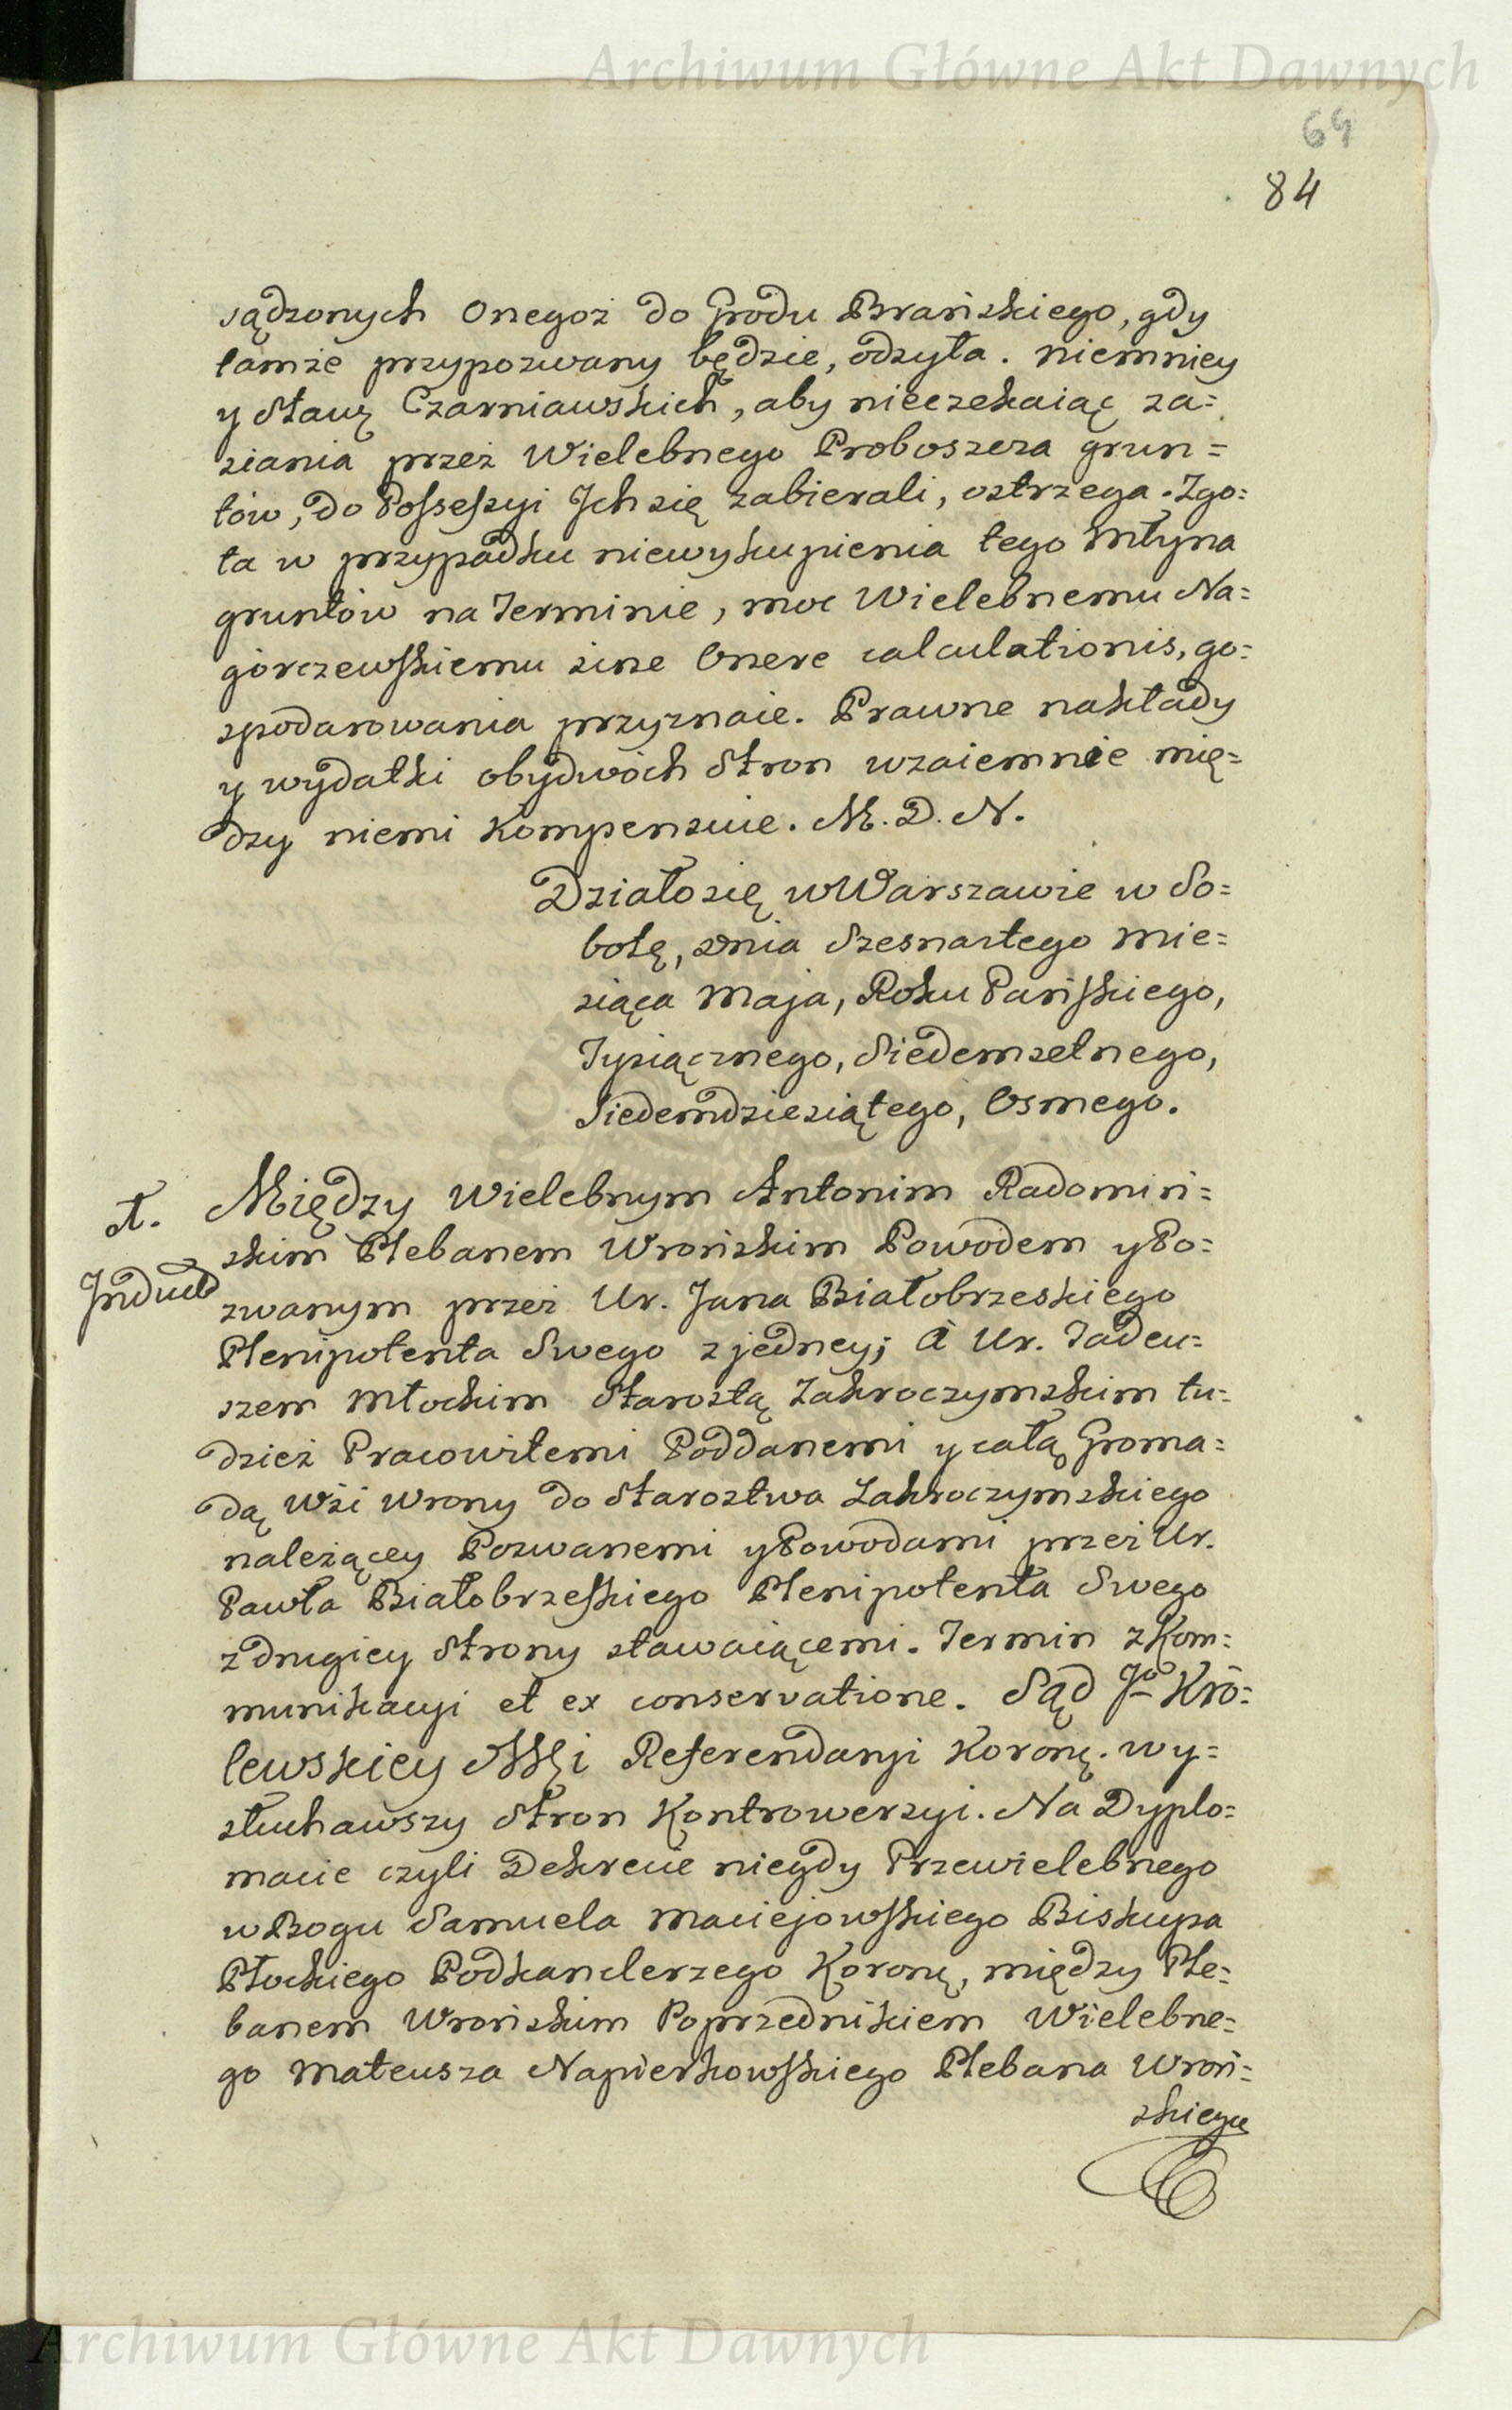 Archiwum Główne Akt Dawnych
64
84
sądzonych onegoż do Grodu Brańskiego, gdy
tamże przypozwany będzie, odsyła. niemniey
y Sławę Czarniawskich, aby nieczekaiąc za=
siania przez Wielebnego Proboszcza grun=
tów, do Possessyi Ich się zabierali, ostrzega. Zgo=
ła w przypadku niewykupienia tego Młyna
gruntów na Terminie, moc Wielebnemu Na=
górczewskiemu sine Onere calculationis, go=
spodarowania przyznaie. Prawne nakłady
y wydatki obydwóch Stron wzaiemnie mię=
dzy niemi Kompensuie. M. D. N.
Działo się w Warszawie w So=
botę, dnia Szesnastego Mie=
siąca Maja, Roku Pańskiego,
Tysiącznego, Siedemsetnego,
Siedemdziesiątego, Osmego.
Między Wielebnym Antonim Radomiń=
skim Plebanem Wrońskim Powodem y Po=
zwanym przez Ur. Jana Białobrzeskiego
Plenipotenta Swego z jedney; à Ur. Tadeu=
szem Młockim Starostą Zakroczymskim tu=
dzież Pracowitemi Poddanemi y całą Groma=
dą Wsi Wrony do Starostwa Zakroczymskiego
należącey Pozwanemi y Powodami przez Ur.
Pawła Białobrzeskiego Plenipotenta Swego
z drugiey Strony stawaiącemi. Termin z Kom=
munikacyi et ex conservatione. Sąd Jo Kró=
lewskiey Mści Referendaryi Koronę. wy=
słuchawszy Stron Kontrowersyi. Na Dyplo=
macie czyli Dekrecie niegdy Przewielebnego
w Bogu Samuela Maciejowskiego Biskupa
Płockiego Podkanclerzego Koronę, między Ple=
banem Wrońskim Poprzednikiem Wielebne=
go Mateusza Napierkowskiego Plebana Wroń=
skiego
Archiwum Główne Akt Dawnych